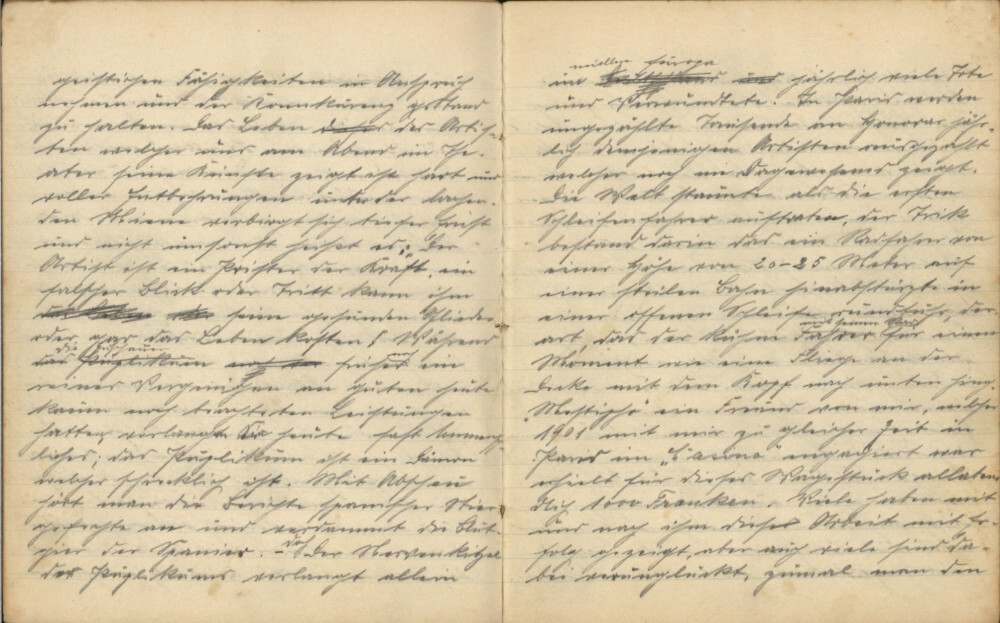 geistigen Fähigkeiten in Anspruch
nehmen und der Konnkurenz gestand
zu halten. Das Leben dieses des Artis-
ten welcher uns am Abend im The-
ater seine Künste zeigt ist hart und
voller Entbehrungen unter der lachen-
den Miene verbirgt sich tiefer Ernst
und nicht umsonst heisst es; „Der
Artist ist ein Prister der Kraft, ein
falscher Blick oder Tritt kann ihm
seine gesunden Glieder
oder gar das Leben kosten! Während
die
das Puplikum früher ein
reines Vergenügen an guten heute
kaum noch beachteten Leistungen
hatten, verlangt es heute fast Unmeng-
liches; das Puplikum ist ein Dämon
welcher schrecklich ist. Mit Abscheu
hört man die Berichte spanischer Stier-
gefechte an und verdammt die Blut-
gier der Spanier. – Der Nervenkitzel
des Puplikums verlangt allein
Europa
im jährlich viele Tote
und Verwundete. In Paris werden
ungezählte Tausende an Honorar jähr-
lich demjenigen Artisten ausgezahlt
welcher noch nie Dagewesenes zeigt.
Die Welt staunte als die ersten
Schleifenfahrer auftraten, der Trik
bestand darin das ein Radfahrer von
einer Höhe von 20–25 Meter auf
einer steilen Bahn hinabstürzte in
einer offenen Schleife rundfuhr, der-
mit seinem Rad
art, das der kühne Fahrer für einen
Moment wie eine Fliege an der
Decke mit dem Kopf nach unten hing.
"Mephisto" ein Freund von mir, welcher
1901 mit mir zu gleicher Zeit in
Paris im „Casino" engagiert war
erhielt für dieses Wagestück allabend-
lich 1000 Franken. Viele haben mit
und nach ihm dieses Arbeit mit Er-
folg gezeigt, aber auch viele sind da-
bei verunglückt, zumal man den